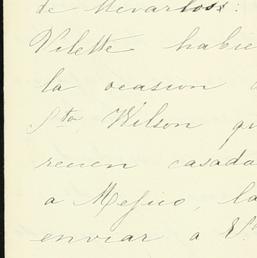 de llevarlos:
Vilette habie
la ocasion d
Sto Wilson qu
recien casada
a Mejico, la
enviar a V.